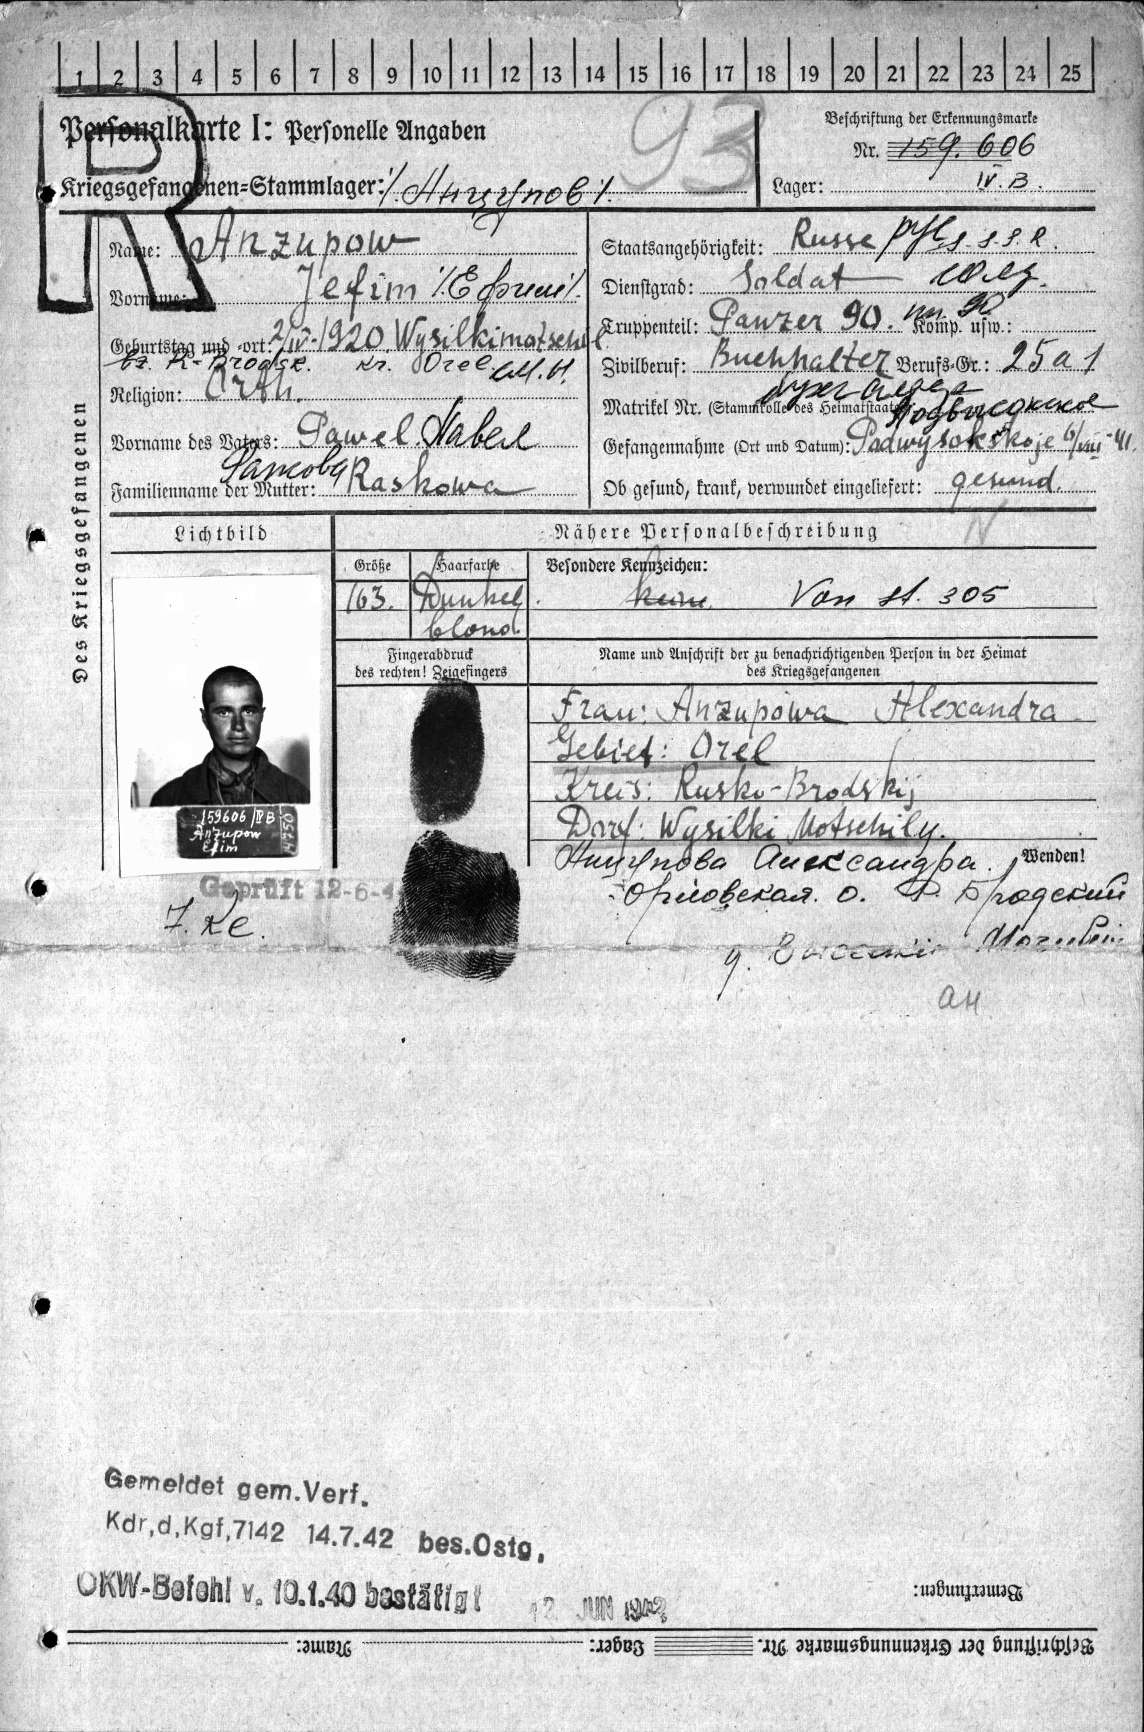 1 2 3 4 5 6 7 8 9 10 11 12 13 14 15 16 17 18 19 20 21 22 23 24 25
R
Personalkarte I: Personelle Angaben
93
Beschriftung der Erkennungsmarke
Nr. 159.606
Kriegsgefangenen-Stammlager: /. Анцупов /.
Lager: IV. B.
Des Kriegsgefangenen
Name: Anzupow
Vorname: Jefim /. Ефим /.
Geburtstag und -ort: 2/IV-1920 Wysilkimotschil
bz. R-Brodsk. kr. Orel
Religion: Orth.
Vorname des Vaters: Pawel.
Familienname der Mutter: Raskowa
Staatsangehörigkeit: Russe S.S.R.
Dienstgrad: Soldat
Truppenteil: Panzer 90. Komp. usw.: 90
Zivilberuf: Buchhalter Berufs-Gr.: 25a1
Matrikel Nr. (Stammrolle des Heimatstaates)
Подвысокское
Gefangennahme (Ort und Datum): Podwysokskoje 6/VIII-41.
Ob gesund, krank, verwundet eingeliefert: gesund.
N
Lichtbild
Nähere Personalbeschreibung
Größe Haarfarbe Besondere Kennzeichen:
163. Dunkel blond. keine. Von St. 305
Fingerabdruck
des rechten! Zeigefingers
Name und Anschrift der zu benachrichtigenden Person in der Heimat
des Kriegsgefangenen
Frau: Anzupowa Alexandra
Gebiet: Orel
Kreis: Rusko-Brodskij
Dorf: Wysilki Motschily.
Анцупова Александра.
Wenden!
Орловская. о. Р. Бродский
д.
ан
159606/IV B
Anzupow
Efim
14750
Geprüft 12-6-4
Gemeldet gem.Verf.
Kdr,d,Kgf,7142 14.7.42 bes.Ostg,
OKW-Befehl v. 10.1.40 bestätigt
12 JUN 1942
Bemerkungen:
Name: Lager: Beschriftung der Erkennungsmarke Nr.